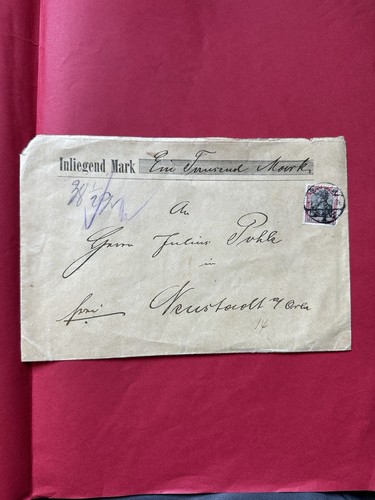 Inliegend Mark Ein Tausend Mark.
An
Herrn Julius Pohle
in
frei Neustadt a/Orla